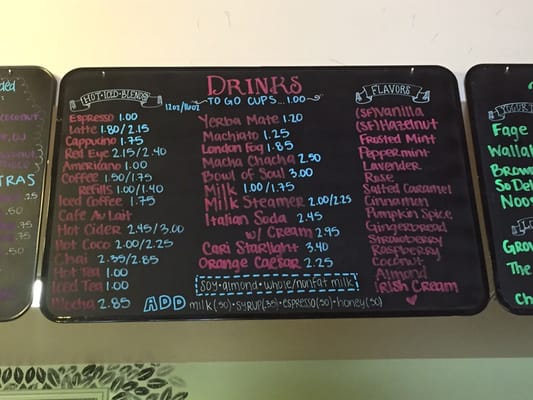 DRINKS
TO GO CUPS... 1.00
HOT·ICED·BLENDED
12oz/16oz
Espresso 1.00
Latte 1.80/2.15
Cappucino 1.75
Red Eye 2.15/2.40
Americano 1.00
Coffee 1.50/1.75
Refills 1.00/1.40
Iced Coffee 1.75
Cafe Au Lait
Hot Cider 2.45/3.00
Hot Coco 2.00/2.25
Chai 2.35/2.85
Hot Tea 1.00
Iced Tea 1.00
Mocha 2.85
Yerba Mate 1.20
Machiato 1.25
London Fog 1.85
Macha Chacha 2.50
Bowl of Soul 3.00
Milk 1.00/1.75
Milk Steamer 2.00/2.25
Italian Soda 2.45
w/ Cream 2.95
Cari Starlight 3.40
Orange Caesar 2.25
soy·almond·whole/nonfat milk
ADD milk(.50)·syrup(.35)·espresso(.50)·honey(.50)
FLAVORS
(SF)Vanilla
(SF)Hazelnut
Frosted Mint
Peppermint
Lavender
Rose
Salted Caramel
Cinnamon
Pumpkin Spice
Gingerbread
Strawberry
Raspberry
Coconut
Almond
Irish Cream
Fage
Brown
So Deli
Noos
The